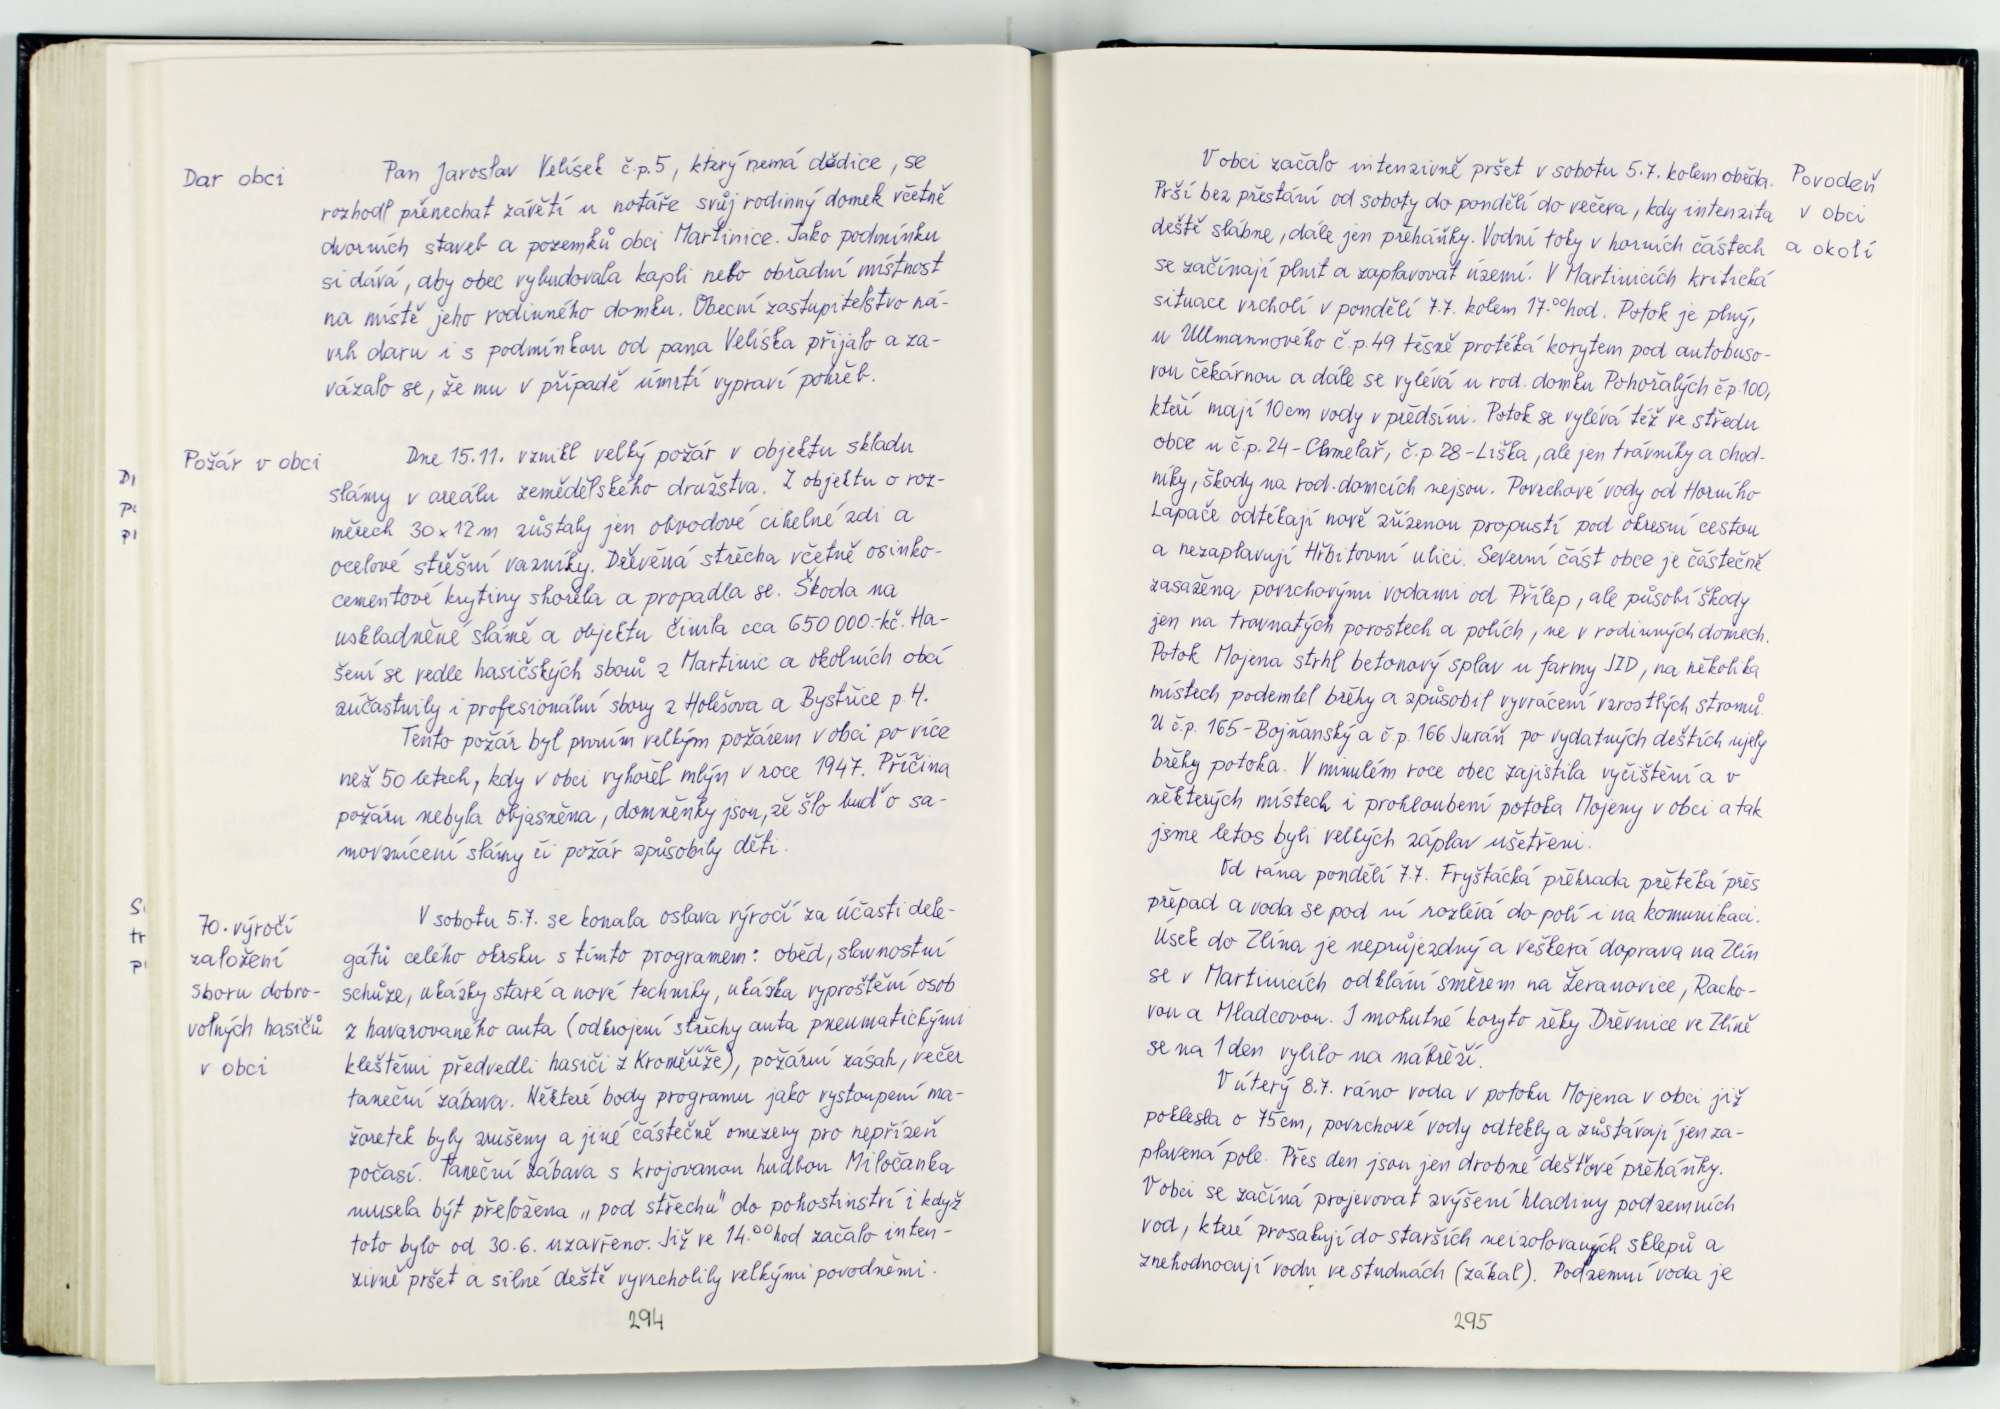 Dar obci
Pan Jaroslav Velísek č.p.5, který nemá dědice, se
rozhodl přenechat závětí u notáře svůj rodinný domek včetně
dvorních staveb a pozemků obci Martinice. Jako podmínku
si dává, aby obec vybudovala kapli nebo obřadní místnost
na místě jeho rodinného domku. Obecní zastupitelstvo ná-
vrh daru i s podmínkou od pana Velíska přijalo a za-
vázalo se, že mu v případě úmrtí vypraví pohřeb.
Požár v obci
Dne 15.11. vznikl velký požár v objektu skladu
slámy v areálu zemědělského družstva. Z objektu o roz-
měrech 30 x 12 m zůstaly jen obvodové cihelné zdi a
ocelové střešní vazníky. Dřevěná střecha včetně osinko-
cementové krytiny shořela a propadla se. Škoda na
uskladněné slámě a objektu činila cca 650 000.-kč. Ha-
šení se vedle hasičských sborů z Martinic a okolních obcí
zúčastnily i profesionální sbory z Holešova a Bystřice p. H.
Tento požár byl prvním velkým požárem v obci po více
než 50 letech, kdy v obci vyhořel mlýn v roce 1947. Příčina
požáru nebyla objasněna, domněnky jsou, že šlo buď o sa-
movznícení slámy či požár způsobily děti.
70. výročí
založení
sboru dobro-
volných hasičů
v obci
V sobotu 5.7. se konala oslava výročí za účasti dele-
gátů celého okrsku s tímto programem: oběd, slavnostní
schůze, ukázky staré a nové techniky, ukázka vyproštění osob
z havarovaného auta (odkrojení střechy auta pneumatickými
kleštěmi předvedli hasiči z Kroměříže), požární zásah, večer
taneční zábava. Některé body programu jako vystoupení ma-
žoretek byly zrušeny a jiné částečně omezeny pro nepřízeň
počasí. Taneční zábava s krojovanou hudbou Miločanka
musela být přeložena „pod střechu" do pohostinství i když
toto bylo od 30.6. uzavřeno. Již ve 14.00 hod začalo inten-
zivně pršet a silné deště vyvrcholily velkými povodněmi.
294
Povodeň
v obci
a okolí
V obci začalo intenzivně pršet v sobotu 5.7. kolem oběda.
Prší bez přestání od soboty do pondělí do večera, kdy intenzita
deště slábne, dále jen přeháňky. Vodní toky v horních částech
se začínají plnit a zaplavovat území. V Martinicích kritická
situace vrcholí v pondělí 7.7. kolem 17.00 hod. Potok je plný,
u Ullmannového č.p.49 těsně protéká korytem pod autobuso-
vou čekárnou a dále se vylévá u rod. domku Pohořalých č.p.100,
kteří mají 10 cm vody v předsíni. Potok se vylévá též ve středu
obce u č.p.24 - Chmelař, č.p.28 - Liška, ale jen trávníky a chod-
níky, škody na rod. domcích nejsou. Povrchové vody od Horního
Lapače odtékají nově zřízenou propustí pod okresní cestou
a nezaplavují Hřbitovní ulici. Severní část obce je částečně
zasažena povrchovými vodami od Přílep, ale působí škody
jen na travnatých porostech a polích, ne v rodinných domech.
Potok Mojena strhl betonový splav u farmy JID, na několika
místech podemlel břehy a způsobil vyvrácení vzrostlých stromů.
U č.p. 165 - Bojňanský a č.p. 166 Juráň po vydatných deštích ujely
břehy potoka. V minulém roce obec zajistila vyčištění a v
některých místech i prohloubení potoka Mojeny v obci a tak
jsme letos byli velkých záplav ušetřeni.
Od rána pondělí 7.7. Fryštácká přehrada přetéká přes
přepad a voda se pod ní rozlévá do polí i na komunikaci.
Úsek do Zlína je neprůjezdný a veškerá doprava na Zlín
se v Martinicích odklání směrem na Žeranovice, Racko-
vou a Mladcovou. I mohutné koryto řeky Dřevnice ve Zlíně
se na 1 den vylilo na nábřeží.
V úterý 8.7. ráno voda v potoku Mojena v obci již
poklesla o 75cm, povrchové vody odtekly a zůstávají jen za-
plavená pole. Přes den jsou jen drobné dešťové přeháňky.
V obci se začíná projevovat zvýšení hladiny podzemních
vod, které prosakují do starších neizolovaných sklepů a
znehodnocují vodu ve studnách (zákal). Podzemní voda je
295